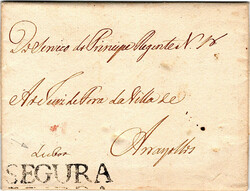 Do Serviço do Principe Regente N. S.
Ao Juiz de Fora da Villa de
Arrayollos
Lisboa
SEGURA